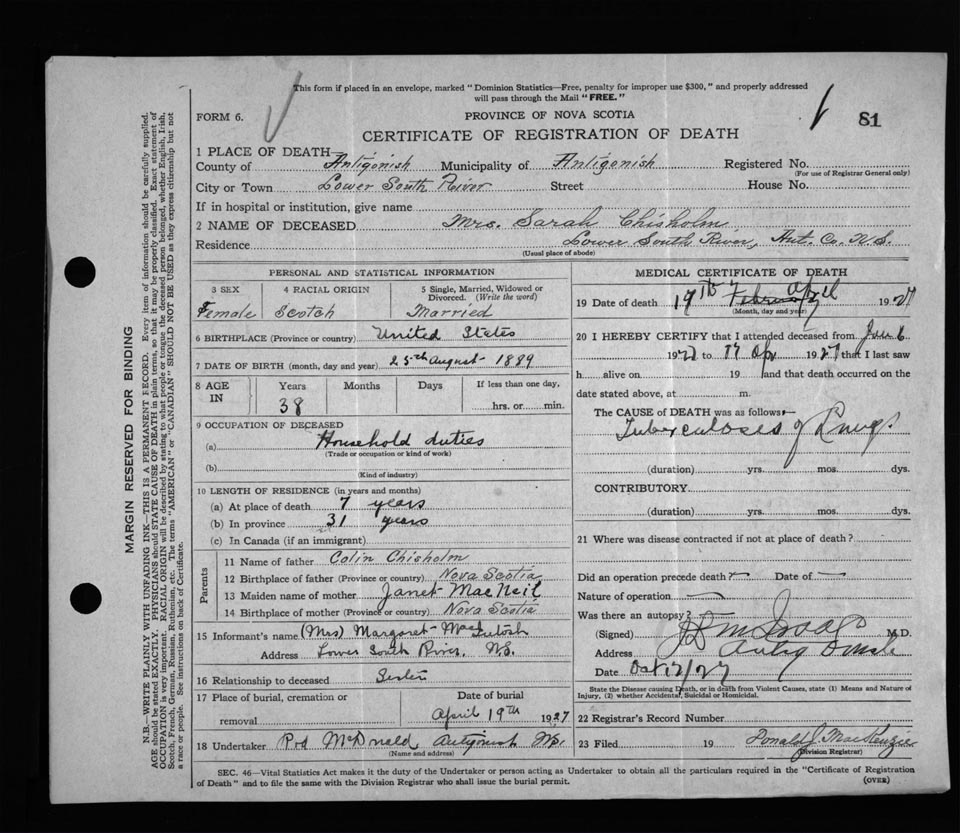 This form if placed in an envelope, marked "Dominion Statistics—Free, penalty for improper use $300," and properly addressed
will pass through the Mail "FREE."
FORM 6.
PROVINCE OF NOVA SCOTIA
81
CERTIFICATE OF REGISTRATION OF DEATH
1 PLACE OF DEATH—
County of Antigonish Municipality of Antigonish Registered No.
(For use of Registrar General only)
City or Town Lower South River Street House No.
If in hospital or institution, give name
2 NAME OF DECEASED Mrs. Sarah Chisholm
Residence Lower South River, Ant. Co. N.S.
(Usual place of abode)
PERSONAL AND STATISTICAL INFORMATION
3 SEX 4 RACIAL ORIGIN 5 Single, Married, Widowed or
Divorced. (Write the word)
Female Scotch Married
6 BIRTHPLACE (Province or country) United States
7 DATE OF BIRTH (month, day and year) 25th August 1889
8 AGE IN Years Months Days If less than one day,
38 hrs. or min.
9 OCCUPATION OF DECEASED
(a) Household duties
(Trade or occupation or kind of work)
(b)
(Kind of industry)
10 LENGTH OF RESIDENCE (in years and months)
(a) At place of death 7 years
(b) In province 31 years
(c) In Canada (if an immigrant)
Parents
11 Name of father Colin Chisholm
12 Birthplace of father (Province or country) Nova Scotia
13 Maiden name of mother Janet MacNeil
14 Birthplace of mother (Province or country) Nova Scotia
15 Informant's name (Mrs) Margaret MacIntosh
Address Lower South River, N.S.
16 Relationship to deceased Sister
17 Place of burial, cremation or Date of burial
removal April 19th 1927
18 Undertaker Rod McDonald Antigonish N.S.
(Name and address)
MEDICAL CERTIFICATE OF DEATH
19 Date of death 17th February April 1927
(Month, day and year)
20 I HEREBY CERTIFY that I attended deceased from Jan 6
1927 to 17 Apr 1927 that I last saw
h alive on 19 and that death occurred on the
date stated above, at m.
The CAUSE of DEATH was as follows:—
Tuberculoses of Lungs
(duration) yrs. mos. dys.
CONTRIBUTORY
(duration) yrs. mos. dys.
21 Where was disease contracted if not at place of death?
Did an operation precede death? Date of
Nature of operation
Was there an autopsy?
(Signed) M.D.
Address
Date Oct 12/27
State the Disease causing Death, or in death from Violent Causes, state (1) Means and Nature of
Injury, (2) whether Accidental, Suicidal or Homicidal.
22 Registrar's Record Number
23 Filed 19 Donald J. MacKenzie
(Division Registrar)
SEC. 46—Vital Statistics Act makes it the duty of the Undertaker or person acting as Undertaker to obtain all the particulars required in the "Certificate of Registration
of Death" and to file the same with the Division Registrar who shall issue the burial permit. (OVER)
MARGIN RESERVED FOR BINDING
N.B.—WRITE PLAINLY WITH UNFADING INK—THIS IS A PERMANENT RECORD. Every item of information should be carefully supplied.
AGE should be stated EXACTLY. PHYSICIANS should STATE CAUSE OF DEATH in plain terms, so that it may be properly classified. Exact statement of
OCCUPATION is very important. RACIAL ORIGIN will be described by stating to what people or tongue the deceased person belonged, whether English, Irish,
Scotch, French, German, Russian, Ruthenian, etc. The terms "AMERICAN" or "CANADIAN" SHOULD NOT BE USED as they express citizenship but not
a race or people. See instructions on back of Certificate.